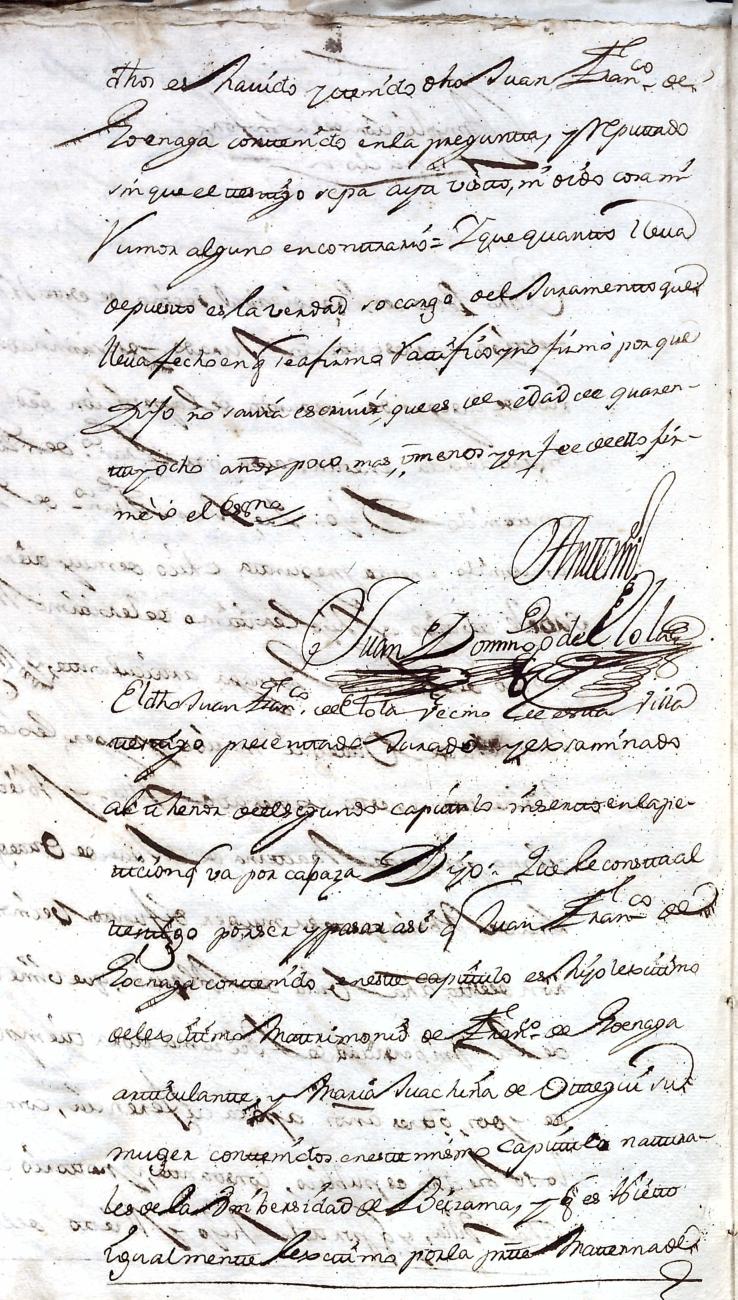 dhos es havido y tenido dho Juan Franco de
Goenaga contenido en la pregunta, y Reputado
sin que el testigo sepa aya visto, ni oido cosa ni
Rumor alguno en contrario = Y que quanto lleva
depuesto es la verdad so cargo del Juramento que
lleva fecho en q se afirmo Ratifico y no firmó por que
Dijo no savia escrivir, que es de edad de quaren-
ta y ocho años poco mas, ò menos y en fee de ello fir-
mè io el Essno
Antemi
Juan Domingo de Elola
El dho Juan Franco de Elola vecino de esta Villa
testigo presentado Jurado y exsaminado
al thenor del segundo capitulo inserto en la pe-
ticion q va por caveza Dijo. Que le consta al
testigo por ser y pasar asi q Juan Franco de
Goenaga contenido en este capitulo es hijo lexitimo
del lexitimo Matrimonio de Franco de Goenaga
articulante, y Maria Juachina de Otaegui su
muger contenidos en este mismo capitulo natura-
les de la Unibersidad de Beizama, y q es Nieto
Igualmente lexitimo por la parte Materna de